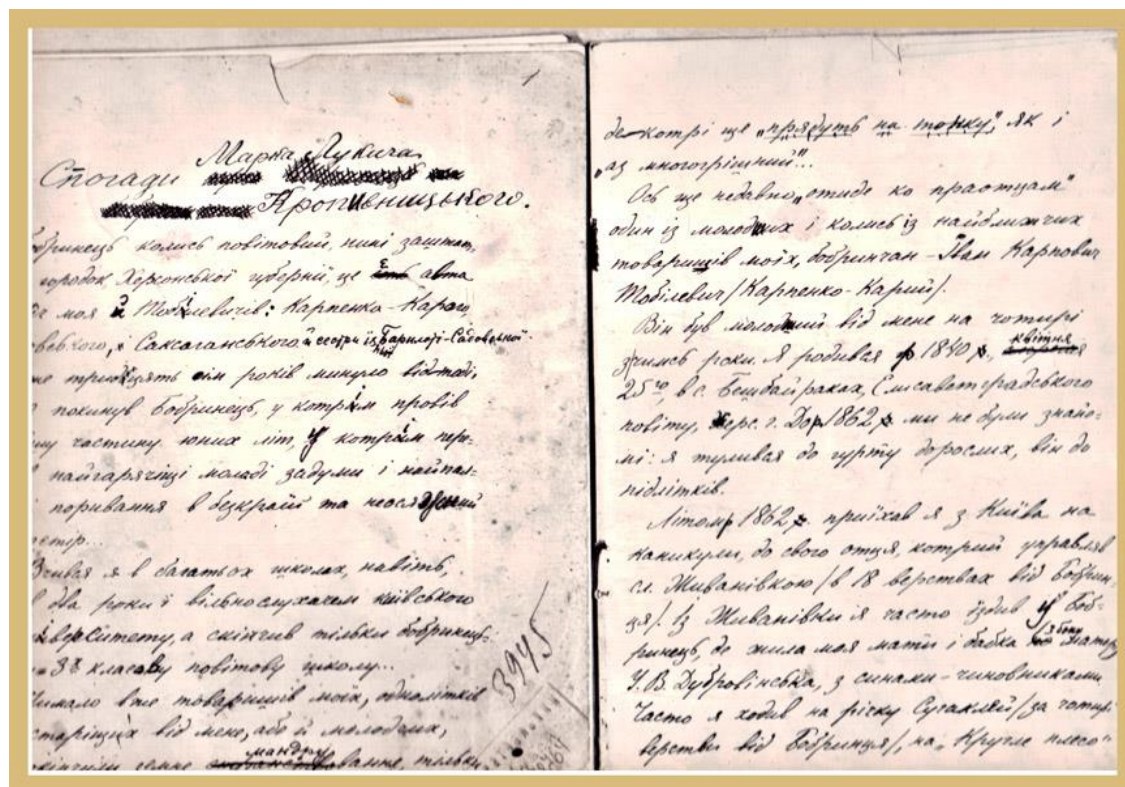 1
Спогади Марка Лукича
Кропивницького.
бринець колись повітовий, нині заштат
ородок, Херсонської губернії, це
моя й Тобілевичів: Карпенка-Карого
Саксаганського й сестри їх Барілоті-Садовської
тридцять сім років минуло відтоді,
покинув Бобринець, у котрім провів
частину юних літ, у котрім пере-
найгарячіщі молоді задуми і найпал-
поривання в безкраїй та неосяжний
Вчився я в багатьох школах, навіть,
два роки і вільнослухачем київського
верситету, а скінчив тільки бобринець-
3х класову повітову школу...
чимало вже товаришів моїх, однолітків
старіщих від мене, або й молодших,
кінчили земне мандрування, тільки
3945
де-котрі ще „прядуть на тонку", як і
„аз многогрішний"...
Ось ще недавно „отиде ко праотцам"
один із молодших і колись із найближчих
товаришів моїх, бобринчан - Іван Карпович
Тобілевич /Карпенко-Карий/.
Він був молодший від мене на чотирі
роки. Я родився р 1840, квітня
25го, в с. Бешбайраках, Єлисаветградського
повіту, Херс. г. До р 1862 ми не були знайо-
мі: я тулився до гурту дорослих, він до
підлітків.
Літом р 1862 приїхав я з Київа на
каникули, до свого отця, котрий управляв
сл. Живанівкою /в 18 верствах від Бобрин-
ця/. Із Живанівки я часто їздив у Боб-
ринець, де жила моя мати і бабка з боку матері
У. В. Дубровінська, з синами-чиновниками.
Часто я ходив на річку Сугаклей /за чотирі
верстви від Бобринця/, на „Кругле плесо"